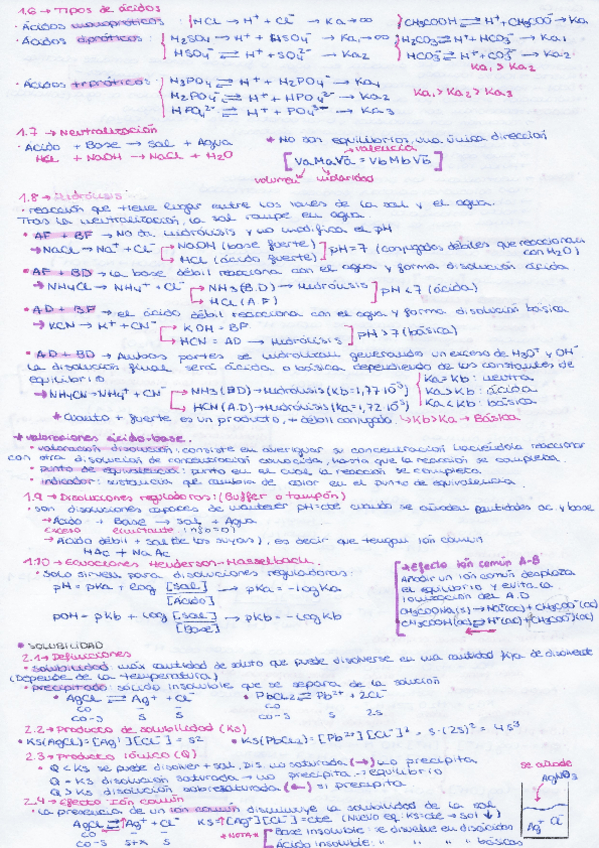 1.6 → Tipos de ácidos
· Ácidos monopróticos: HCl → H⁺ + Cl⁻ → Ka → ∞ CH₃COOH ⇌ H⁺ + CH₃COO⁻ → Ka
· Ácidos dipróticos: H₂SO₄ → H⁺ + HSO₄⁻ → Ka₁ → ∞ H₂CO₃ ⇌ H⁺ + HCO₃⁻ → Ka₁
HSO₄⁻ ⇌ H⁺ + SO₄²⁻ → Ka₂ HCO₃⁻ ⇌ H⁺ + CO₃²⁻ → Ka₂
Ka₁ > Ka₂
· Ácidos tripróticos: H₃PO₄ ⇌ H⁺ + H₂PO₄⁻ → Ka₁
H₂PO₄⁻ ⇌ H⁺ + HPO₄²⁻ → Ka₂ Ka₁ > Ka₂ > Ka₃
HPO₄²⁻ ⇌ H⁺ + PO₄³⁻ → Ka₃
1.7 → Neutralización
· Ácido + Base → Sal + Agua * No son equilibrios, una única dirección
HCl + NaOH → NaCl + H₂O valencia
[VaMaVa = VbMbVb]
volumen molaridad
1.8 → Hidrólisis
· reacción que tiene lugar entre los iones de la sal y el agua.
Tras la neutralización, la sal rompe en agua.
· AF + BF → No da hidrólisis y no modifica el pH
→ NaCl → Na⁺ + Cl⁻ NaOH (base fuerte) pH = 7 (conjugados débiles que reaccionan
HCl (ácido fuerte) con H₂O)
· AF + BD → la base débil reacciona con el agua y forma disolución ácida
→ NH₄Cl → NH₄⁺ + Cl⁻ NH₃ (B.D) → Hidrólisis pH < 7 (ácida)
HCl (A.F)
· AD + BF → el ácido débil reacciona con el agua y forma disolución básica
→ KCN → K⁺ + CN⁻ KOH = BF
HCN = AD → Hidrólisis pH > 7 (básica)
· AD + BD → Ambas partes se hidrolizan generando un exceso de H₃O⁺ y OH⁻
La disolución final será ácida o básica dependiendo de las constantes de
equilibrio Ka = Kb: neutra
→ NH₄CN → NH₄⁺ + CN⁻ NH₃ (BD) → Hidrólisis (Kb = 1,77·10⁻⁵) Ka > Kb: ácida
HCN (A.D) → Hidrólisis (Ka = 1,72·10⁻⁵) Ka < Kb: básica
* Cuanto + fuerte es un producto, + débil conjugado. ↳ Kb > Ka → Básica
* Valoraciones ácido-base.
· valoración disolución: consiste en averiguar su concentración haciéndola reaccionar
con otra disolución de concentración conocida, hasta que la reacción se completa.
· punto de equivalencia: punto en el cual la reacción se completa.
· indicador: sustancia que cambia de color en el punto de equivalencia.
1.9 → Disoluciones reguladoras: (Buffer o tampón)
· son disoluciones capaces de mantener pH = cte cuando se añaden cantidades ac. y base
→ Ácido + Base → Sal + Agua
exceso
→ Ácido débil + sal de los suyos), es decir que tengan ión común
HAc + NaAc
1.10 → Ecuaciones Henderson-Hasselbach.
· Solo sirven para disoluciones reguladoras:
pH = pKa + log [sal] → pKa = -log Ka
[Ácido]
pOH = pKb + log [sal] → pKb = -log Kb
[Base]
* Efecto ión común A-B
Añadir un ión común desplaza
el equilibrio y evita la
ionización del A.D
CH₃COONa(s) → Na⁺(ac) + CH₃COO⁻(ac)
CH₃COOH(ac) ⇌ H⁺(ac) + CH₃COO⁻(ac)
* SOLUBILIDAD
2.1 → Definiciones
· solubilidad máx cantidad de soluto que puede disolverse en una cantidad fija de disolvente
(Depende de la temperatura)
· precipitado: sólido insoluble que se separa de la solución
· AgCl ⇌ Ag⁺ + Cl⁻ · PbCl₂ ⇌ Pb²⁺ + 2Cl⁻
co co
co-s s s co-s s 2s
2.2 → Producto de solubilidad (Ks)
· Ks(AgCl) = [Ag⁺][Cl⁻] = s² · Ks(PbCl₂) = [Pb²⁺][Cl⁻]² = s·(2s)² = 4s³
2.3 → Producto iónico (Q)
· Q < Ks se puede disolver + sal, Dis. no saturada (→) no precipita
Q = Ks disolución saturada → no precipita → equilibrio
Q > Ks disolución sobresaturada (←) sí precipita
se añade
AgNO₃
2.4 → Efecto ión común
· La presencia de un ion común disminuye la solubilidad de la sal
AgCl ⇌ Ag⁺ + Cl⁻ Ks = [Ag⁺][Cl⁻] = cte (Nuevo eq: Ks = cte → sol ↓)
co
co-s s+x s
*NOTA* Base insoluble: se disuelve en disácidas
Ácido insoluble: " " " básicas
Ag⁺ Cl⁻